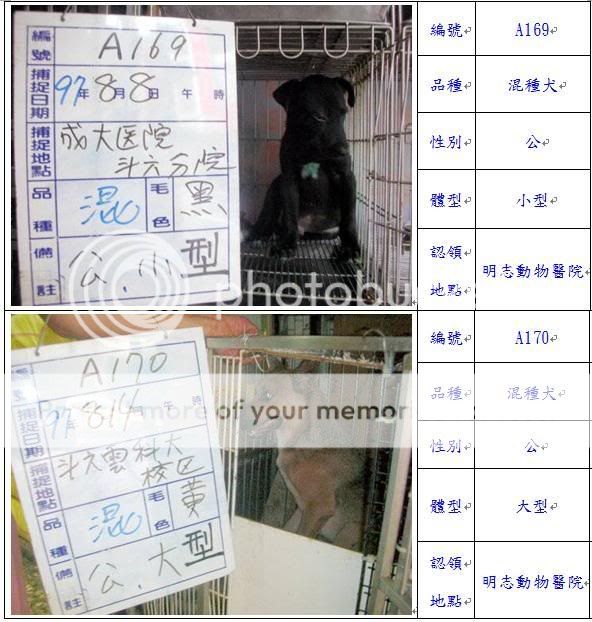 編號 A169
捕捉日期 97年8月8日 午 時
捕捉地點 成大医院
斗六分院
品種 混 毛色 黑
備註 公.小型
編號 A169
品種 混種犬
性別 公
體型 小型
認領
地點 明志動物醫院
photobu
編號 A170
捕捉日期 97年8 14 午 時
捕捉地點 斗六雲科大
校区
品種 混 毛色 黃
備註 公.大型
more of your memor
編號 A170
品種 混種犬
性別 公
體型 大型
認領
地點 明志動物醫院